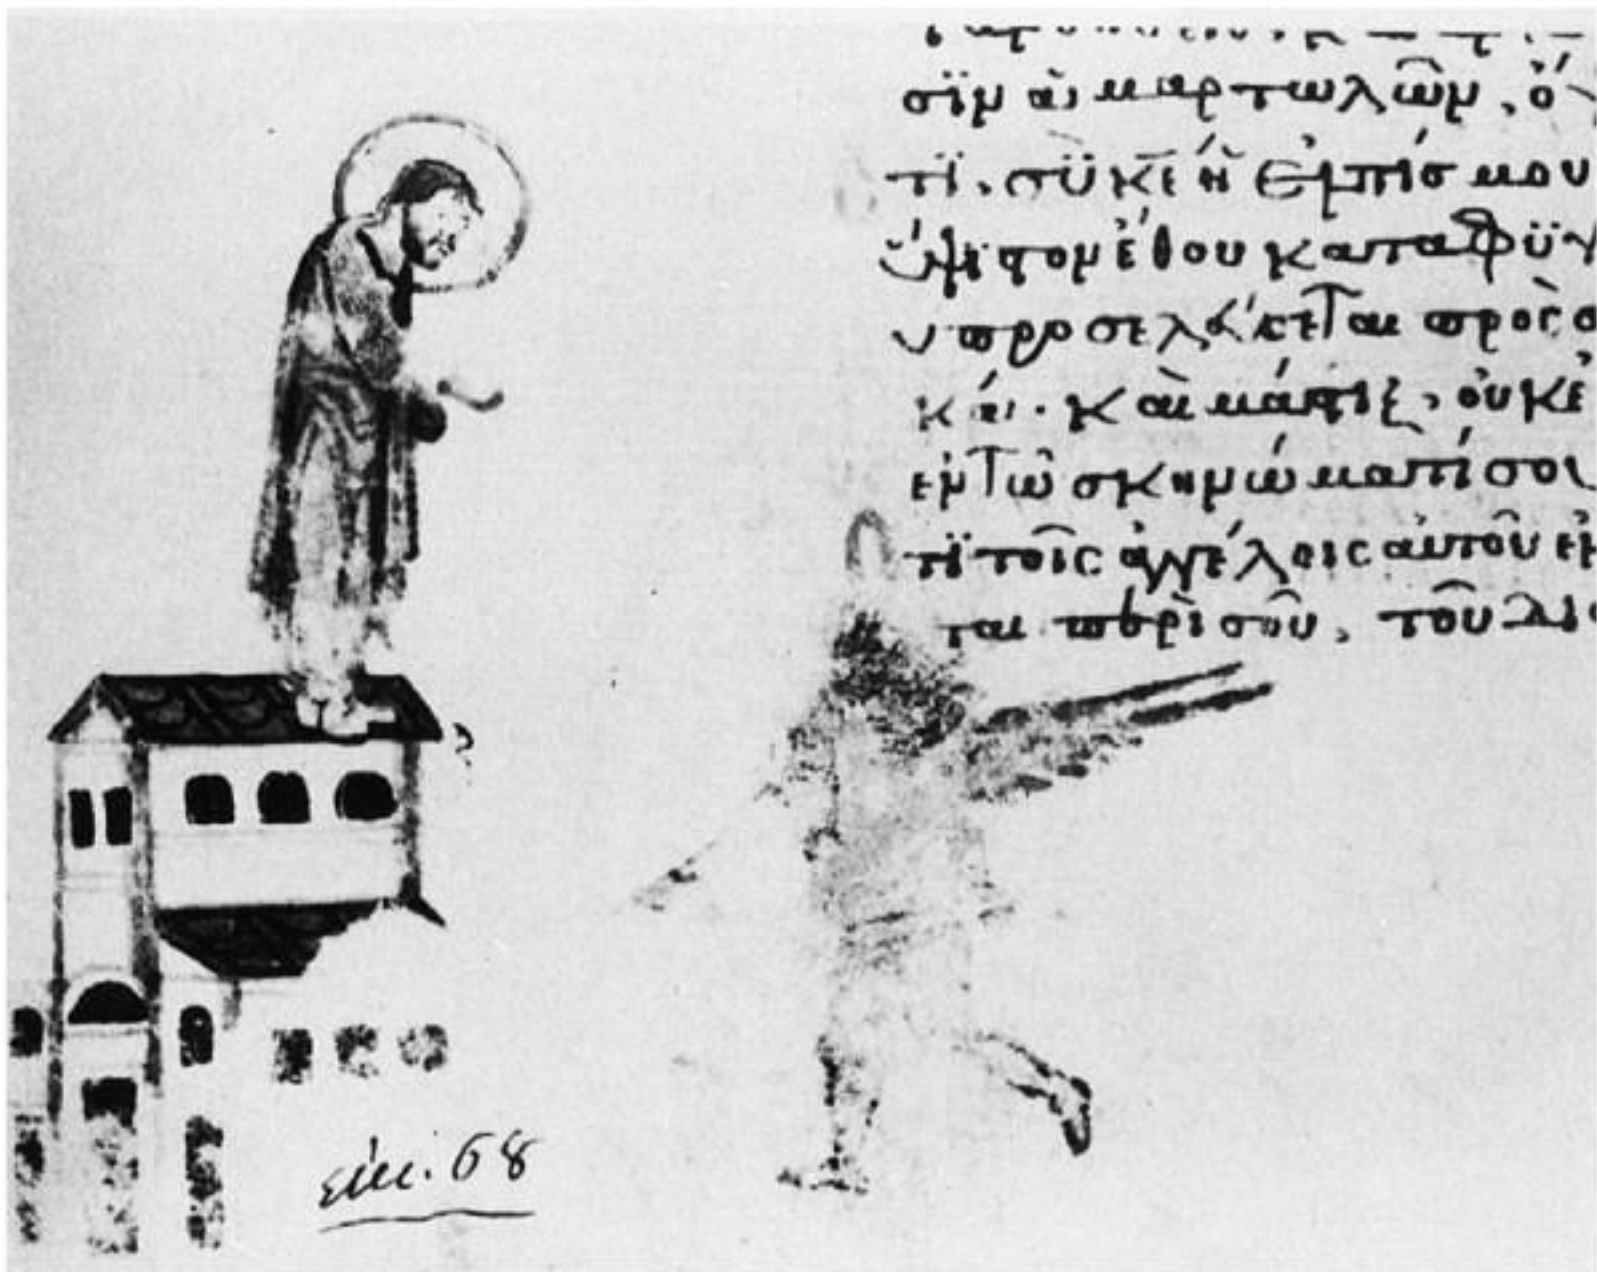 σϊν ἁμαρτωλῶν, ὄ
τϊ. σϋ κε ἡ ἐλπίσ μου
ὕψιστον ἔθου καταφϋγ
υ προσελεύσεται πρὸς σ
κά. καὶ μάστιξ, οὐκ ἐ
ἐν τῶ σκηνώματί σου
τϊ τοῖς ἀγγέλοις αὐτοῦ ἐν
ται περὶ σοῦ, τοῦ δι
εἰκ. 68